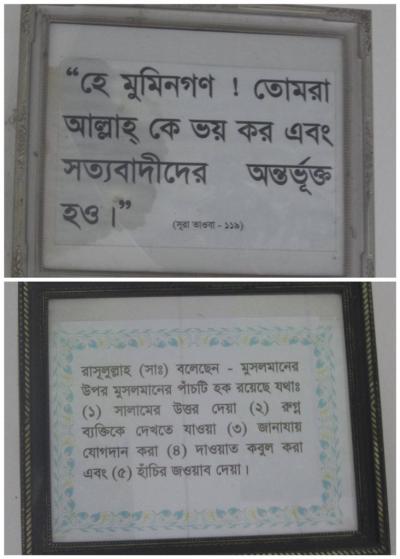 “হে মুমিনগণ ! তোমরা
আল্লাহ্ কে ভয় কর এবং
সত্যবাদীদের অন্তর্ভূক্ত
হও।”
(সূরা তাওবা - ১১৯)
রাসূলুল্লাহ (সাঃ) বলেছেন - মুসলমানের
উপর মুসলমানের পাঁচটি হক রয়েছে যথাঃ
(১) সালামের উত্তর দেয়া (২) রুগ্ন
ব্যক্তিকে দেখতে যাওয়া (৩) জানাযায়
যোগদান করা (৪) দাওয়াত কবুল করা
এবং (৫) হাঁচির জওয়াব দেয়া।